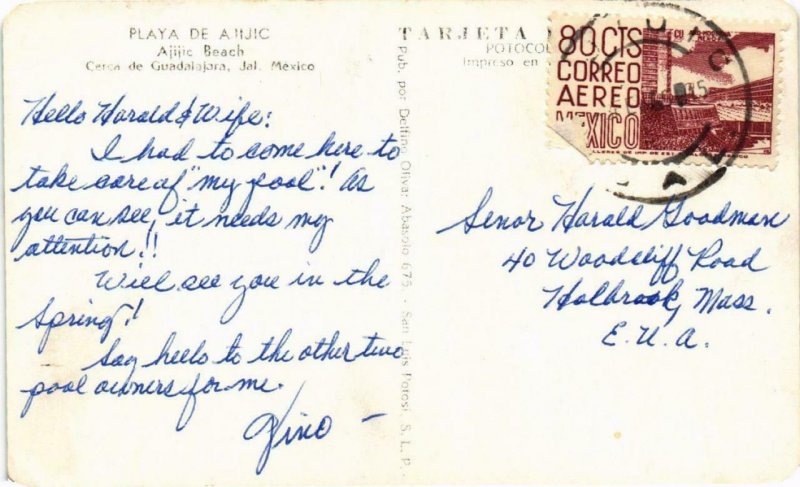 PLAYA DE AJIJIC
Ajijic Beach
Cerca de Guadalajara, Jal. México
Hello Harald & Wife:
I had to come here to
take care of "my pool"! As
you can see, it needs my
attention!!
Will see you in the
Spring!
Say hello to the other two
pool owners for me.
Gino –
Pub. por Delfino Oliva: Abasolo 675. - San Luis Potosí, S. L. P.
TARJETA
Impreso en
80 CTS
CORREO
AEREO
MEXICO
Senor Harald Goodman
40 Woodcliff Road
Holbrook, Mass.
E.U.A.